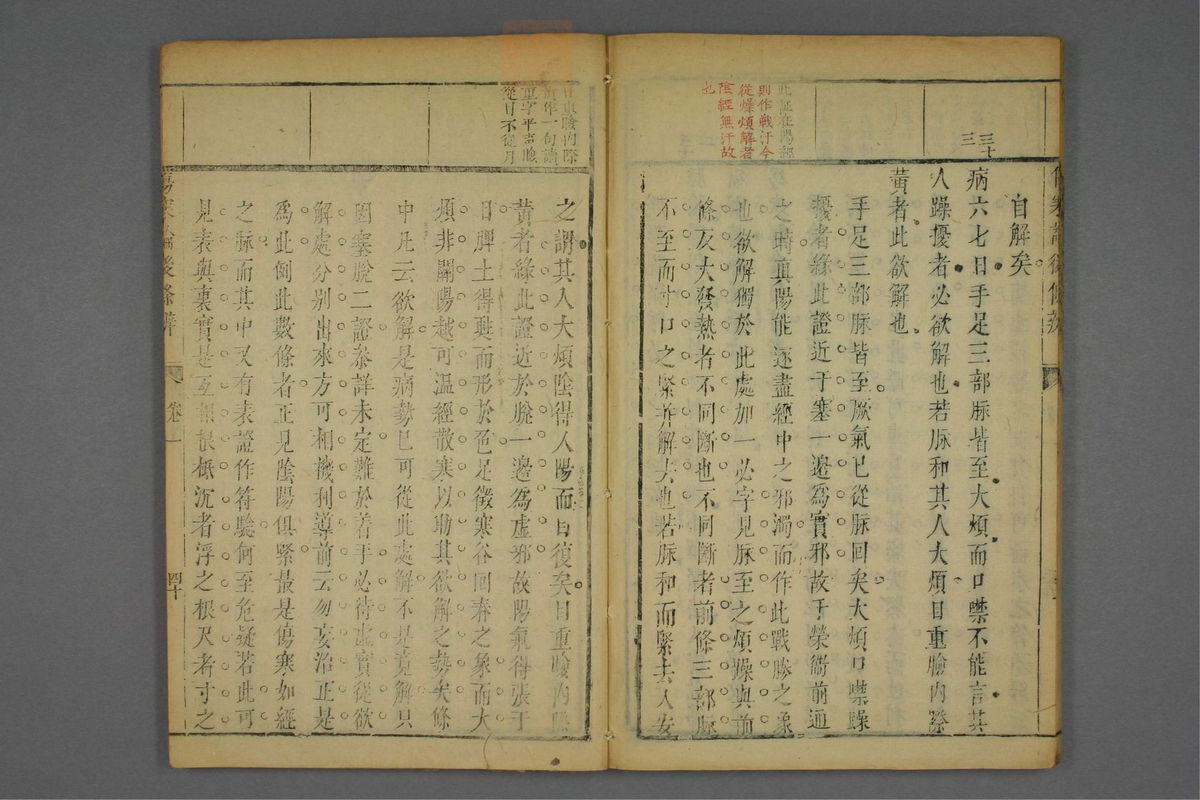 三十三
此証在陽經
則作戰汗今
從燥煩解者
陰經無汗故
也
自解矣
病六七日手足三部脉皆至大煩而口噤不能言其
人躁擾者必欲解也若脉和其人大煩目重臉內際
黃者此欲解也
手足三部脉皆至厥氣已從脉回矣大煩口噤躁
擾者緣此證近于塞一邊爲實邪故于榮衞前通
之時真陽能逐盡經中之邪濁而作此戰勝之象
也欲解獨於此處加一必字見脉至之煩躁與前
條反大發熱者不同斷也不同斷者前條三部脉
不至而寸口之緊并解去也若脉和而緊去人安
目重臉內際
黃作一句讀
重字平聲臉
從目不從月
之謂其人大煩陰得入陽而日復矣目重臉內際
黃者緣此證近於脫一邊爲虛邪故陽氣得張于
目脾土得甦而形於色足徵寒谷回春之象而大
煩非關陽越可温經散寒以助其欲解之勢矣條
中凡云欲解是病勢已可從此處解不是竟解只
因塞脫二證叅詳未定難於着手必待虛實從欲
解處分別出來方可相機利導前云勿妄治正是
爲此例此數條者正見陰陽俱緊最是傷寒如經
之脉而其中又有表證作符驗何至危疑若此可
見表與裏實是互相根柢沉者浮之根尺者寸之
傷寒論後條辨
卷一
四十